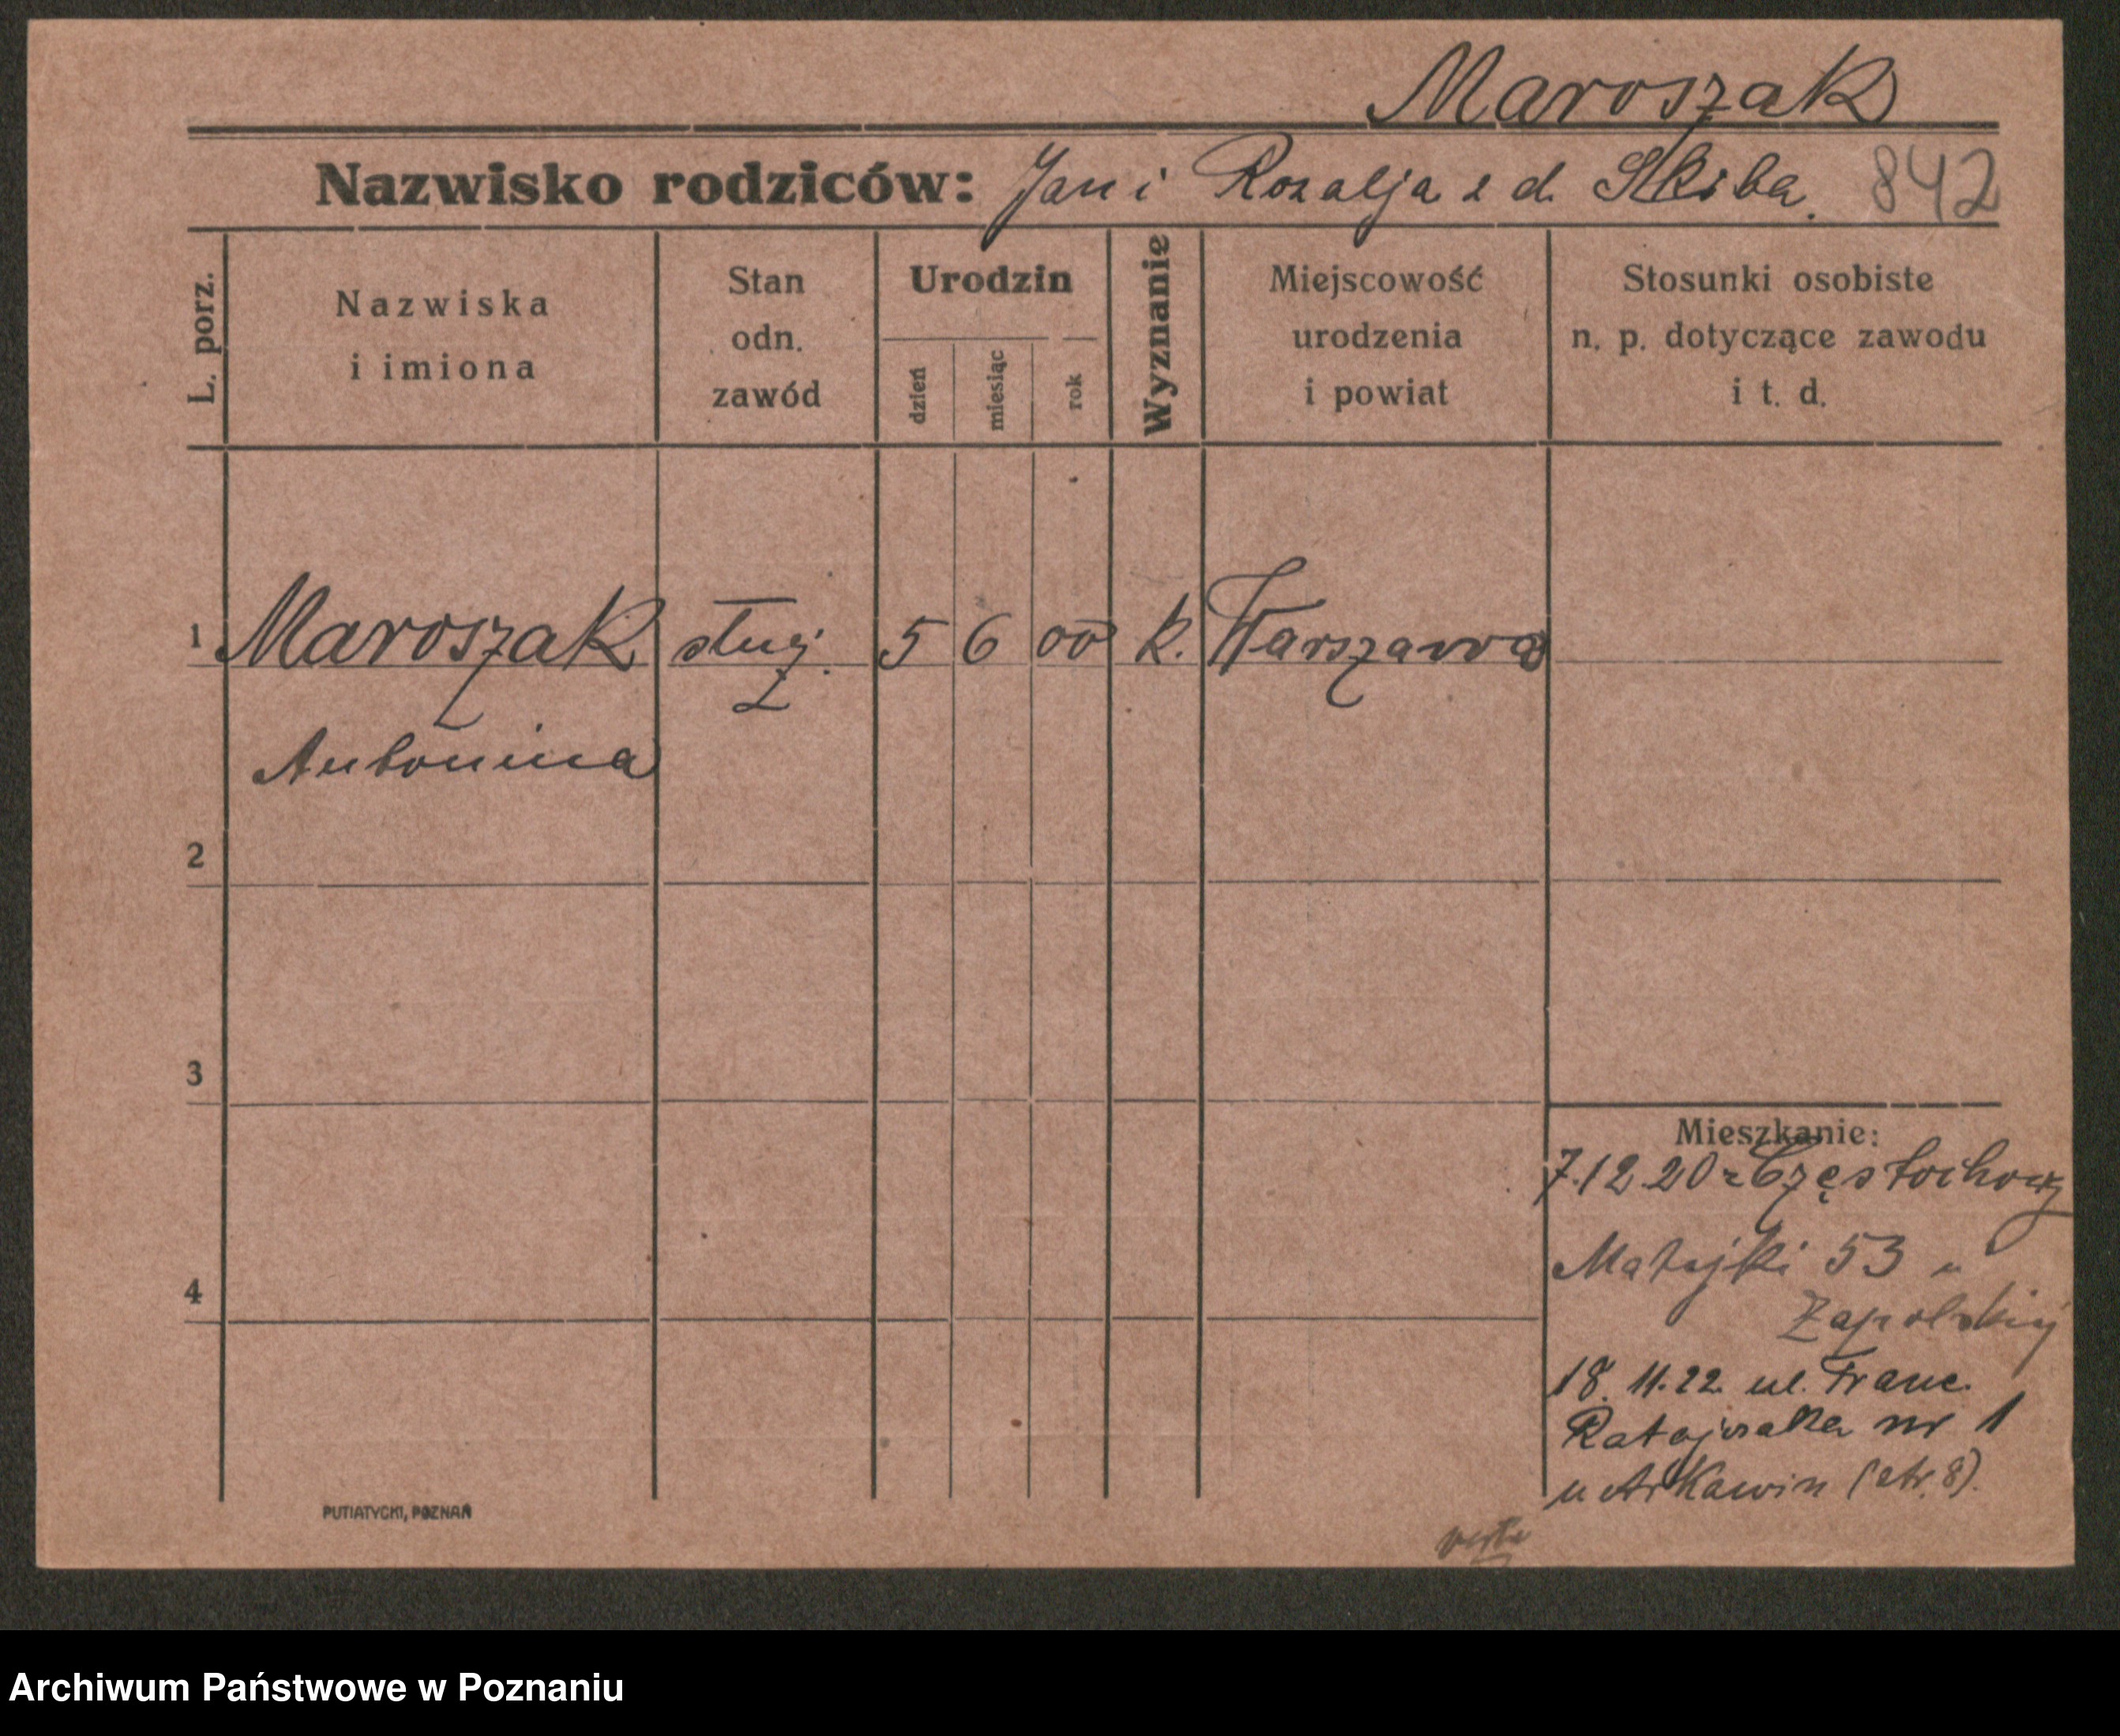 Maroszak
Nazwisko rodziców: Jan i Rozalja z d. Skiba. 842
L. porz.
Nazwiska
i imiona
Stan
odn.
zawód
Urodzin
dzień
miesiąc
rok
Wyznanie
Miejscowość
urodzenia
i powiat
Stosunki osobiste
n. p. dotyczące zawodu
i t. d.
1 Maroszak służ. 5 6 00 k. Warszawa
Antonina
2
3
4
Mieszkanie:
7.12.20 z Częstochowy
Matejki 53 u
Zapolskiej
18.11.22. ul. Franc.
Ratajczaka nr 1
u Arkawin (str. 8).
PUTIATYCKI, POZNAŃ
Archiwum Państwowe w Poznaniu